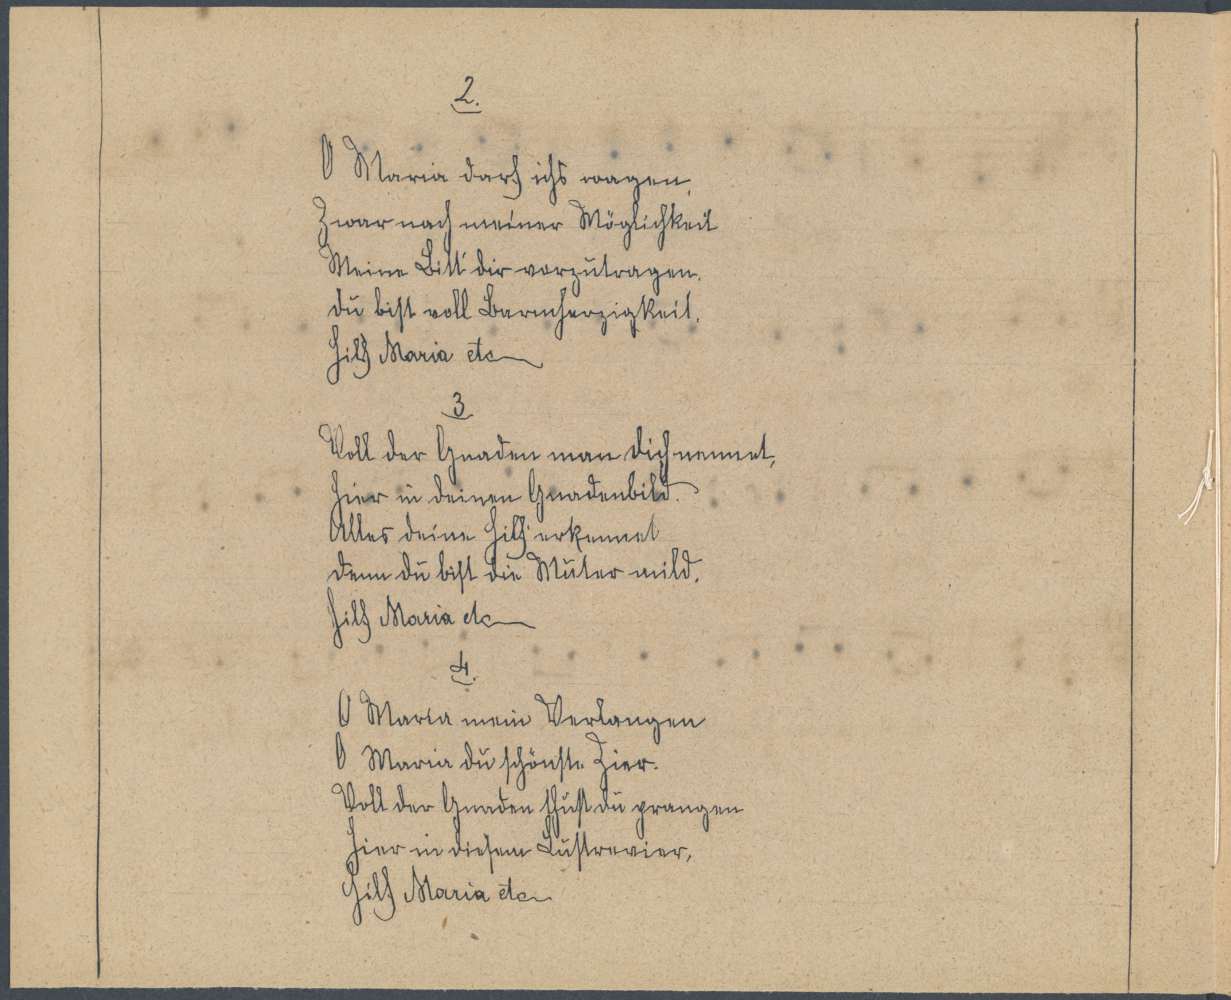 2.
O Maria darf ichs wagen,
Zwar nach meiner Möglichkeit
Meine Bitt' dir vorzutragen,
du bist voll Barmherzigkeit.
Hilf Maria etc
3
Voll der Gnaden man dich nennet,
hier in deinen Gnadenbild.
Alles deine Hilf' erkennet
denn du bist die Muter mild.
Hilf Maria etc
4.
O Maria mein Verlangen
O Maria du schönste Zier.
Voll der Gnaden thust du prangen
Hier in diesem Lustrevier,
Hilf Maria etc